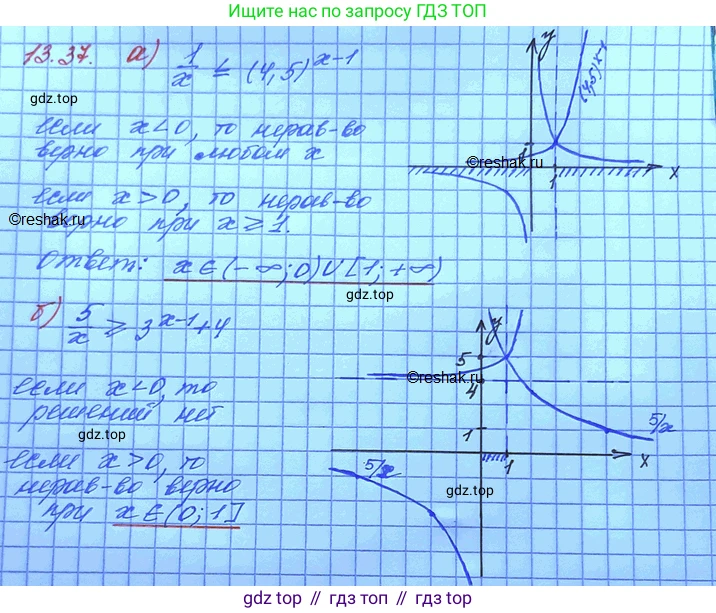 Ищите нас по запросу ГДЗ ТОП
13.37. а) 1/x ≤ (4,5)^(x-1)
gdz.top
если x<0, то нерав-во
верно при любом x
если x>0, то нерав-во
верно при x≥1.
©reshak.ru
Ответ: x∈(-∞;0)∪[1;+∞)
y
(4,5)^(x-1)
1
©reshak.ru
1
x
gdz.top
б) 5/x ≥ 3^(x-1)+4
если x<0, то
решений нет
gdz.top
если x>0, то
нерав-во верно
при x∈(0;1]
y
5
©reshak.ru
4
1
5/x
1
x
5/x
gdz.top
gdz top // гдз топ // gdz top